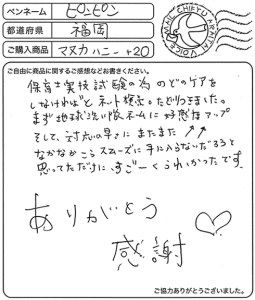 ペンネーム ピンピン
都道府県 福岡
ご購入商品 マヌカハニー +20
MAIL CHIKYU ARAITAI VOICE
ご自由に商品に関するご感想などお書きください。
保育士実技試験の為 のどのケアを
しなければと ネット検索。たどりつきました。
まず地球洗い隊ネームに 好感度アップ
そして、対応の早さに またまた ↗↗
なかなかこうスムーズに手に入らないだろうと
思ってただけに、すごーくうれしかったです。
ありがとう
感謝
ご協力ありがとうございました。